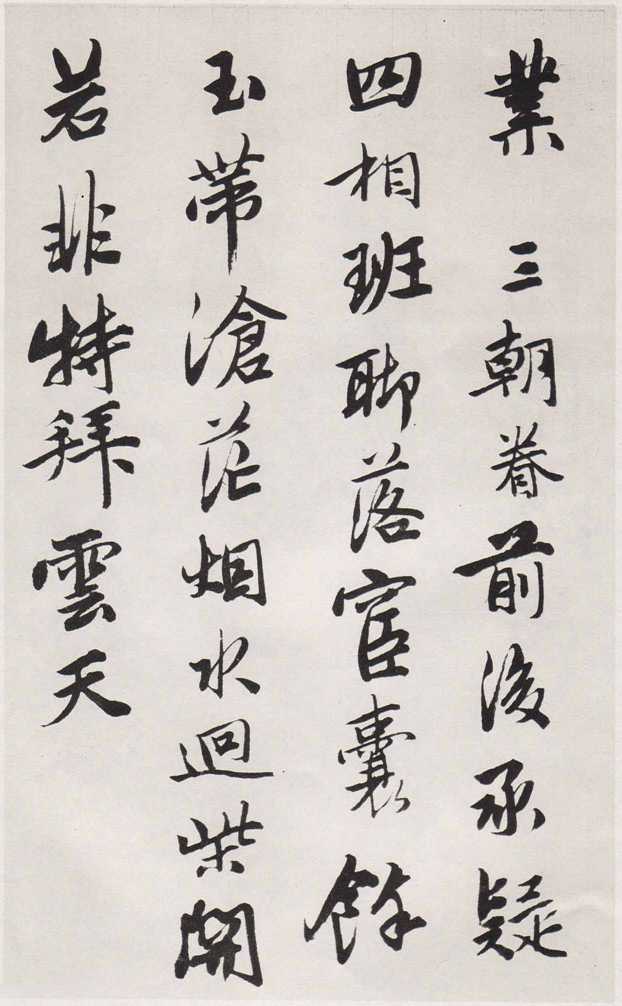 業 三朝眷前後承疑
四相班聊落宦囊餘
玉帶滄茫烟水迴柴關
若非特拜雲天